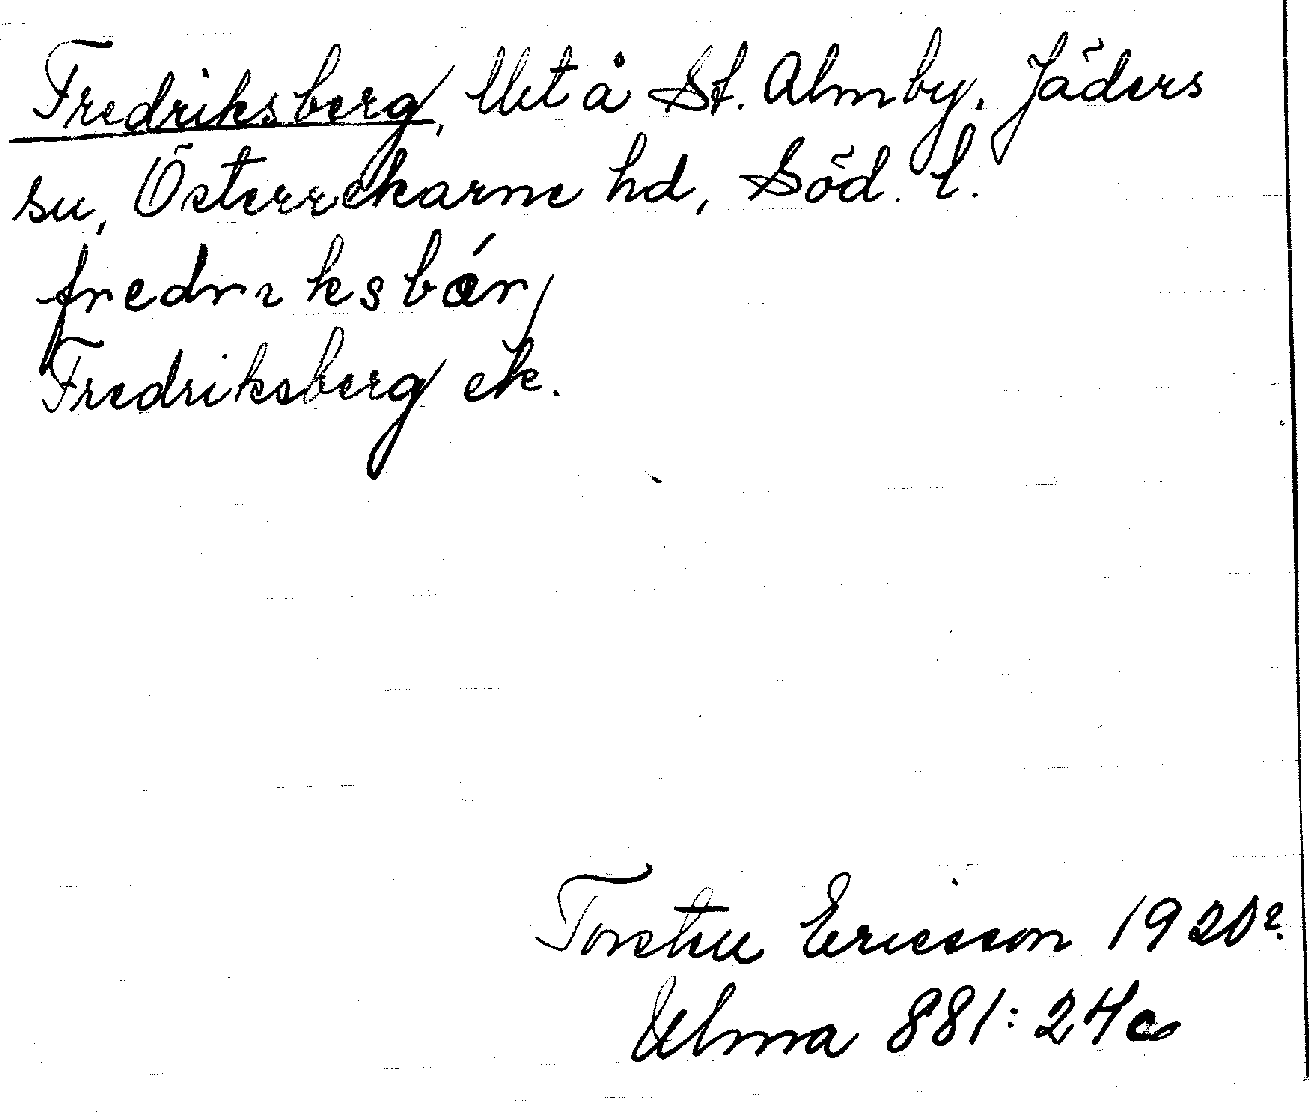 Fredriksberg, Utå St. Almby, Jäders
sn, Österrekarne hd, Söd. l.
fredrıksbær,
Fredriksberg ek.
Torsten Ericsson 1920?
Ulma 881:24c